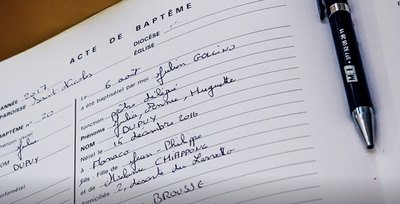 ACTE DE BAPTÊME
ANNÉE 2017
PAROISSE Saint Nicolas
DIOCÈSE
ÉGLISE
BAPTÊME n° 20
Prénom usuel
Julia
NOM
DUPUY
Le 6 août
a été baptisé(e) par moi Julien GOLLINO
fonction Prêtre délégué
Prénoms Julia, Denise, Huguette
NOM DUPUY
Né(e) le 15 décembre 2016
à Monaco
Fils - Fille de Jean-Philippe
et de Mélanie CHIAPPONE
domiciliés 2, descente du Larvotto
BROUSSE